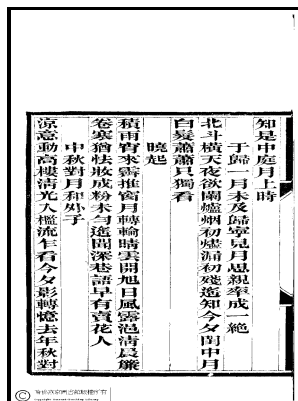 知是中庭月上時
于歸一月未及歸寧見月思親率成一絕
北斗橫天夜欲闌爐烟初燼漏初殘遙知今夕閨中月
白髮蕭蕭只獨看
曉起
積雨宵來霽推窗月轉輪晴雲開旭日風露浥清晨簾
卷寒猶怯妝成粉未勻遙聞深巷語早有賣花人
中秋對月和外子
涼意動高樓清光入檻流乍看今夕影轉憶去年秋對
©